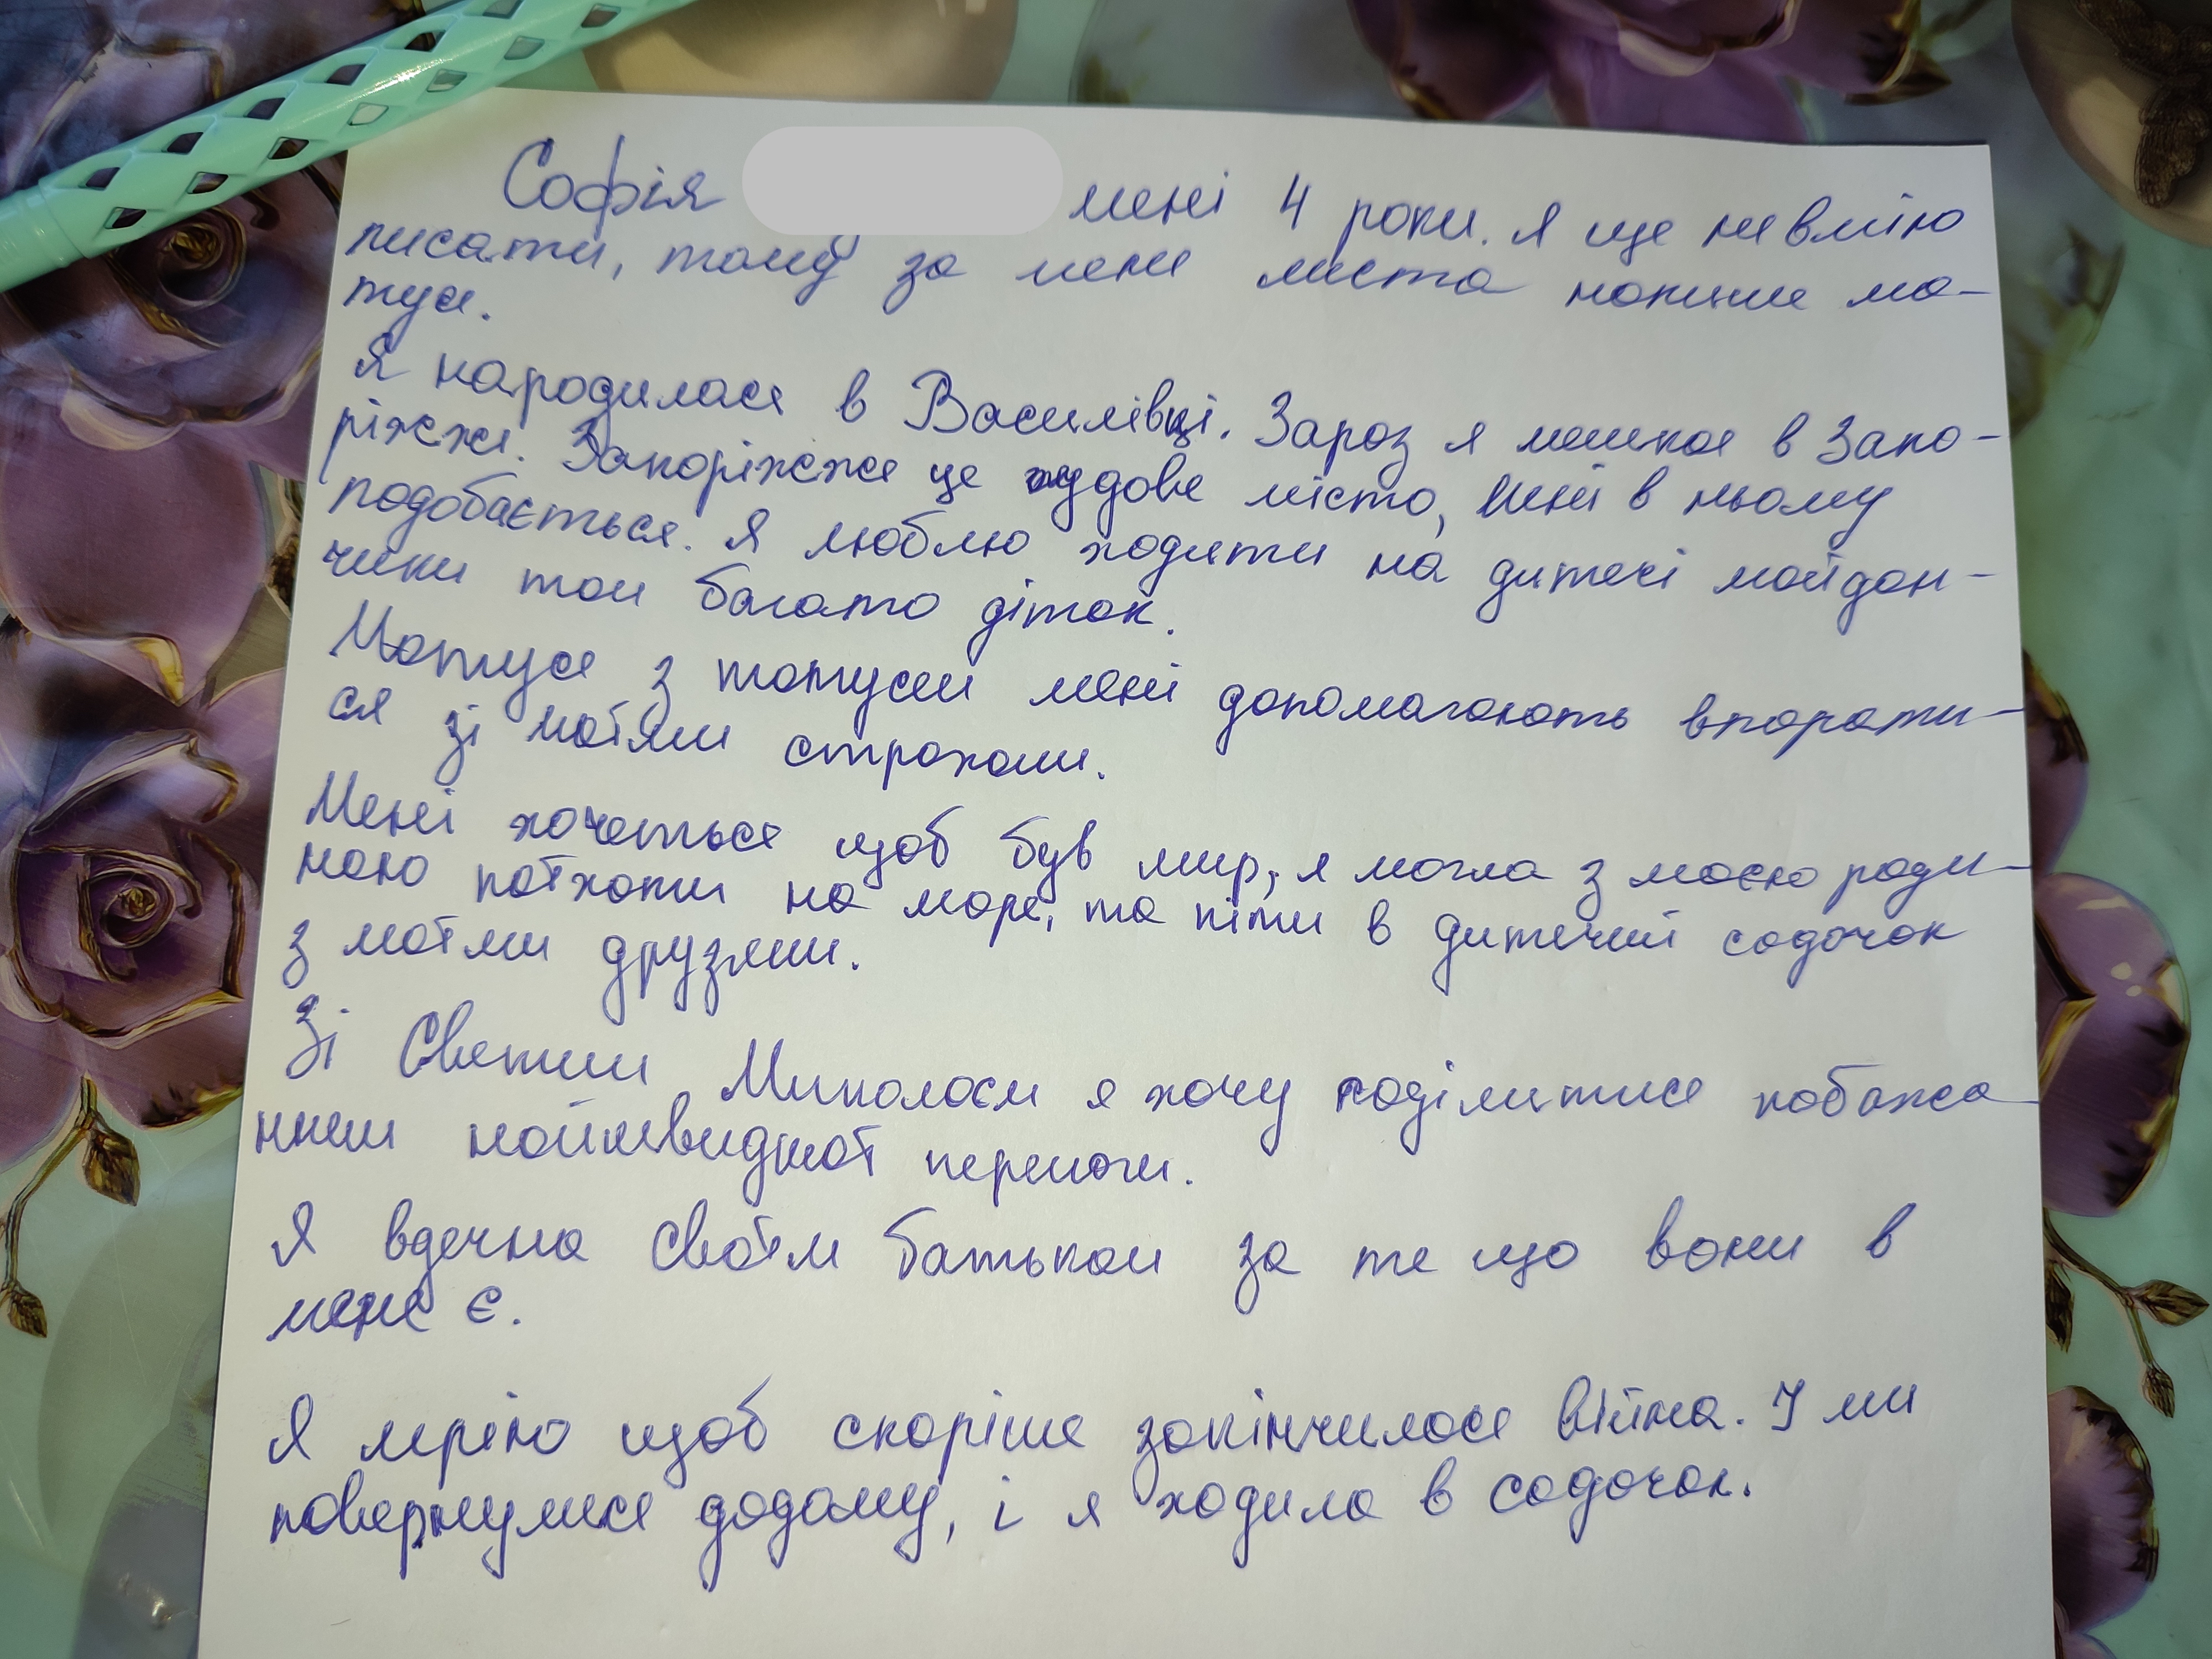 Софія мені 4 роки. Я ще не вмію
писати, тому за мене листа напише ма-
туся.
Я народилася в Василівці. Зараз я мешкаю в Запо-
ріжжі. Запоріжжя це чудове місто, мені в ньому
подобається. Я люблю ходити на дитячі майдан-
чики там багато діток.
Матуся з татусем мені допомагають впорати-
ся зі моїми страхами.
Мені хочеться щоб був мир, я могла з моєю роди-
ною поїхати на море, та піти в дитячий садочок
з моїми друзями.
Зі Святим Миколаєм я хочу поділитися побажа-
нням найшвидшої перемоги.
Я вдячна своїм батькам за те що вони в
мене є.
Я мрію щоб скоріше закінчилася війна. І ми
повернулися додому, і я ходила в садочок.